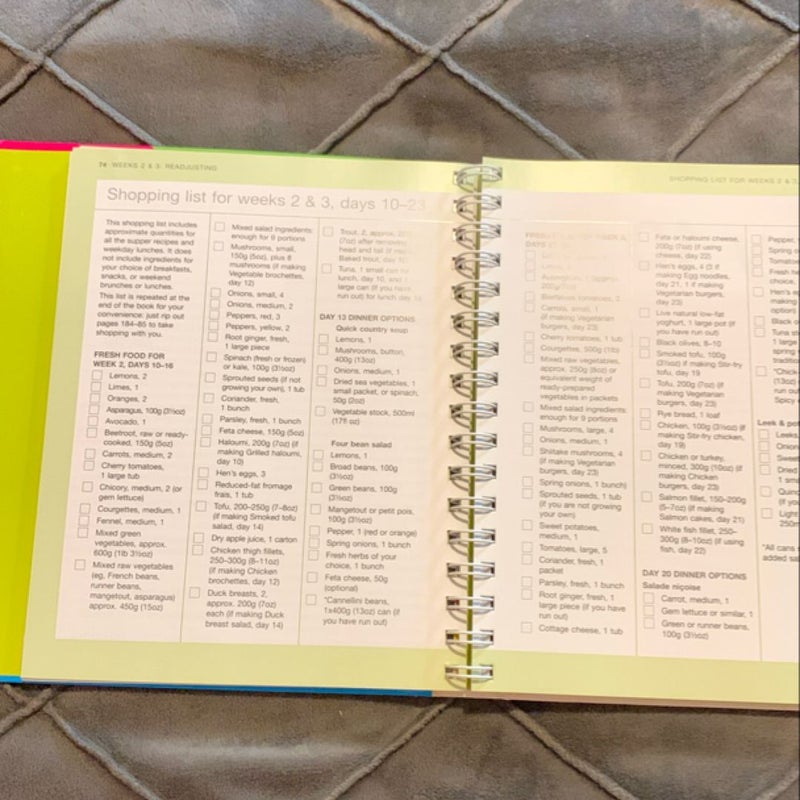 74 WEEKS 2 & 3: READJUSTING
Shopping list for weeks 2 & 3, days 10–23
This shopping list includes
approximate quantities for
all the supper recipes and
weekday lunches. It does
not include ingredients for
your choice of breakfasts,
snacks, or weekend
brunches or lunches.
This list is repeated at the
end of the book for your
convenience: just rip out
pages 184–85 to take
shopping with you.
FRESH FOOD FOR
WEEK 2, DAYS 10–16
Lemons, 2
Limes, 1
Oranges, 2
Asparagus, 100g (3½oz)
Avocado, 1
Beetroot, raw or ready-
cooked, 150g (5oz)
Carrots, medium, 2
Cherry tomatoes,
1 large tub
Chicory, medium, 2 (or
gem lettuce)
Courgettes, medium, 1
Fennel, medium, 1
Mixed green
vegetables, approx.
600g (1lb 3½oz)
Mixed raw vegetables
(eg, French beans,
runner beans,
mangetout, asparagus)
approx. 450g (15oz)
Mixed salad ingredients:
enough for 9 portions
Mushrooms, small,
150g (5oz), plus 8
mushrooms (if making
Vegetable brochettes,
day 12)
Onions, small, 4
Onions, medium, 2
Peppers, red, 3
Peppers, yellow, 2
Root ginger, fresh,
1 large piece
Spinach (fresh or frozen)
or kale, 100g (3½oz)
Sprouted seeds (if not
growing your own), 1 tub
Coriander, fresh,
1 bunch
Parsley, fresh, 1 bunch
Feta cheese, 150g (5oz)
Haloumi, 200g (7oz) (if
making Grilled haloumi,
day 10)
Hen's eggs, 3
Reduced-fat fromage
frais, 1 tub
Tofu, 200–250g (7–8oz)
(if making Smoked tofu
salad, day 14)
Dry apple juice, 1 carton
Chicken thigh fillets,
250–300g (8–11oz)
(if making Chicken
brochettes, day 12)
Duck breasts, 2,
approx. 200g (7oz)
each (if making Duck
breast salad, day 14)
Trout, 2, approx.
(7oz) after removing
head and tail (if
Baked trout, day
Tuna, 1 small can for
lunch, day 10, and 1
large can (if you have
run out) for lunch day
DAY 13 DINNER OPTIONS
Quick country soup
Lemons, 1
Mushrooms, button,
400g (13oz)
Onions, medium, 1
Dried sea vegetables, 1
small packet, or spinach,
50g (2oz)
Vegetable stock, 500ml
(17fl oz)
Four bean salad
Lemons, 1
Broad beans, 100g
(3½oz)
Green beans, 100g
(3½oz)
Mangetout or petit pois,
100g (3½oz)
Pepper, 1 (red or orange)
Spring onions, 1 bunch
Fresh herbs of your
choice, 1 bunch
Feta cheese, 50g
(optional)
*Cannellini beans,
1x400g (13oz) can (if
you have run out)
SHOPPING LIST FOR WEEKS 2 & 3,
Beefsteak tomatoes, 2
Carrots, small, 1
(if making Vegetarian
burgers, day 23)
Cherry tomatoes, 1 tub
Courgettes, 500g (1lb)
Mixed raw vegetables,
approx, 250g (8oz) or
equivalent weight of
ready-prepared
vegetables in packets
Mixed salad ingredients:
enough for 9 portions
Mushrooms, large, 4
Onions, medium, 1
Shiitake mushrooms, 4
(if making Vegetarian
burgers, day 23)
Spring onions, 1 bunch)
Sprouted seeds, 1 tub
(if you are not growing
your own)
Sweet potatoes,
medium, 1
Tomatoes, large, 5
Coriander, fresh, 1
packet
Parsley, fresh, 1 bunch
Root ginger, fresh, 1
large piece (if you have
run out)
Cottage cheese, 1 tub
Feta or haloumi cheese,
200g (7oz) (if using
cheese, day 22)
Hen's eggs, 4 (3 if
making Egg noodles,
day 21, 1 if making
Vegetarian burgers,
day 23)
Live natural low-fat
yoghurt, 1 large pot (if
you have run out)
Black olives, 8–10
Smoked tofu, 100g
(3½oz) if making Stir-fry
tofu, day 19
Tofu, 200g (7oz) (if
making Vegetarian
burgers, day 23)
Rye bread, 1 loaf
Chicken, 100g (3½oz) if
making Stir-fry chicken,
day 19)
Chicken or turkey,
minced, 300g (10oz) (if
making Chicken
burgers, day 23)
Salmon fillet, 150–200g
(5–7oz) (if making
Salmon cakes, day 21)
White fish fillet, 250–
300g (8–10oz) (if using
fish, day 22)
DAY 20 DINNER OPTIONS
Salade niçoise
Carrot, medium, 1
Gem lettuce or similar, 1
Green or runner beans,
100g (3½oz)
Pepper,
Spring o
Tomatoe
Fresh he
choice,
Hen's
making
option)
Black o
Tuna st
1 large
spring
traditio
*Chick
(13oz)
run out
Spicy
Leek & po
Leeks
Onion
Sweet
Dried
1 sma
Quino
(if yo
Light
250m
*All cans
added sa